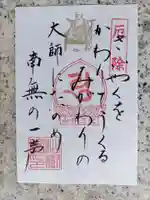 厄除
さいやくを
かわりてうくる
みがわりの
大師にたのめ
南無の一声